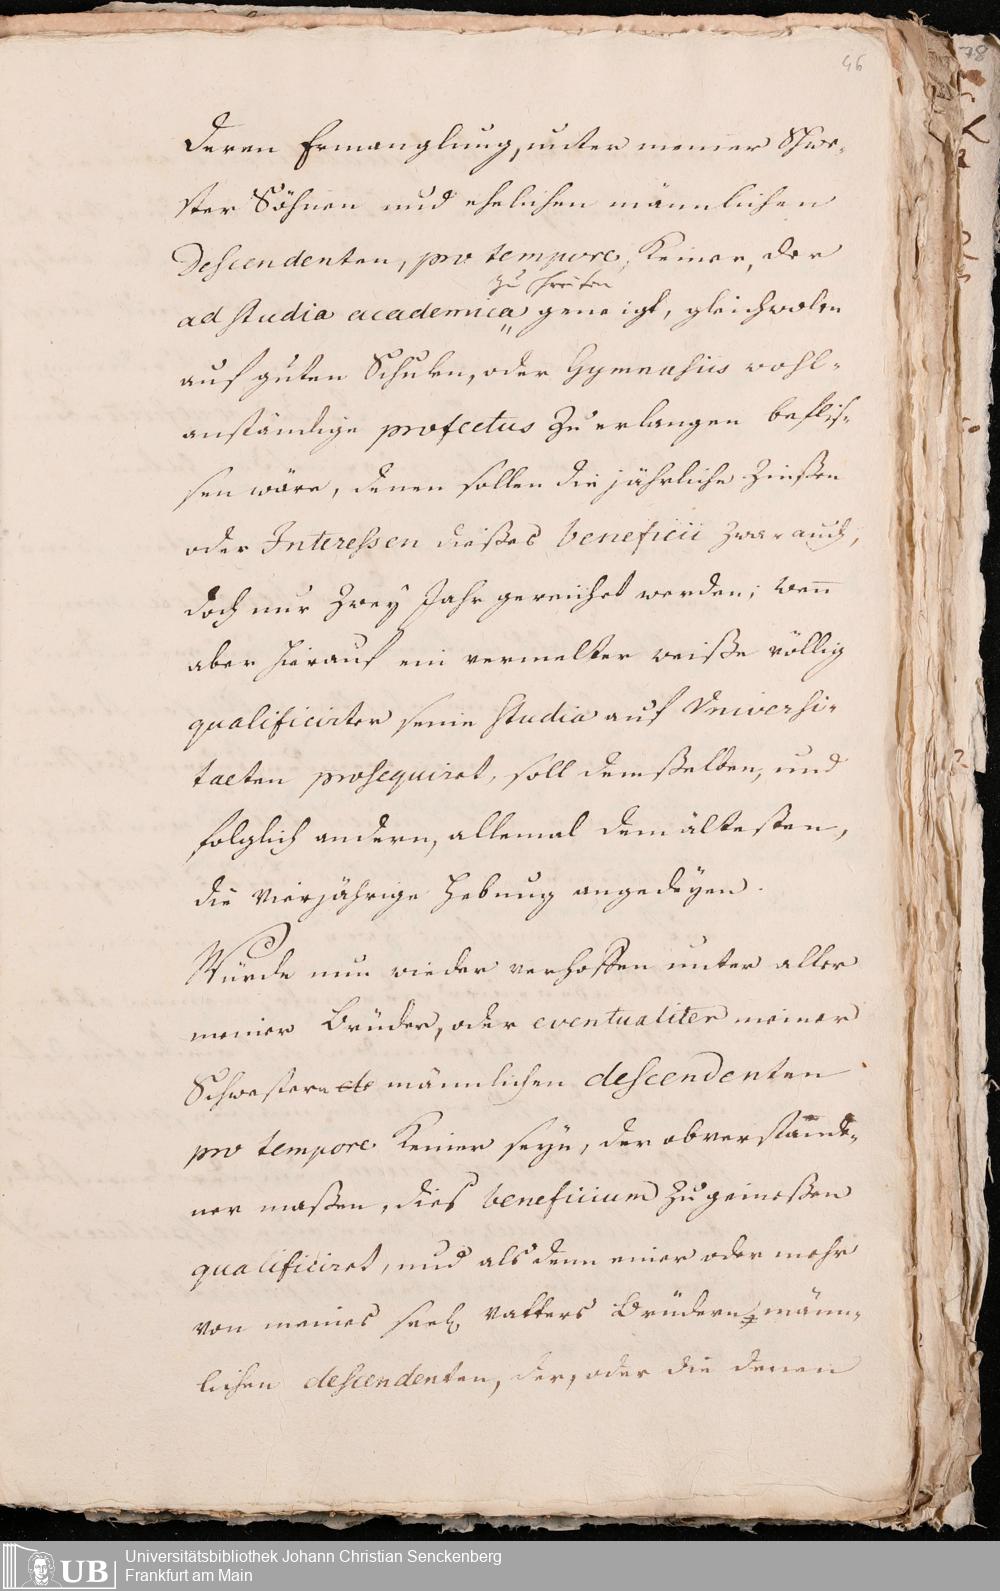 46
deren Ermanglung, unter meiner Schwe-
ster Söhnen und ehelichen männlichen
Descendenten, pro tempore, Keiner, der
zu schreiten
ad studia academica geneigt, gleichwolen
auf guten Schulen, oder Gymnasiis wohl-
anständige profectus zu erlangen beflis-
sen wäre, denen sollen die jährliche Zinßen
oder Interessen dießes beneficii zwar auch,
doch nur zwey Jahr gereichet werden; wenn
aber hierauf ein vermelter weiße völlig
qualificirter seine studia auf Universi-
taeten prosequiret, soll demßelben, und
folglich andern, allemal dem ältesten,
die vierjährige Hebung angedeyen.
Würde nun wieder verhoffen unter aller
meiner Brüder, oder eventualiter meiner
Schwestern männlichen descendenten
pro tempore Keiner seyn, der obverstande-
ner maßen, dies beneficium zu genießen
qualificiret, und als denn einer oder mehr
von meines seel. Vatters Brüdern männ-
lichen descendenten, der, oder die denen
78
UB
Universitätsbibliothek Johann Christian Senckenberg
Frankfurt am Main